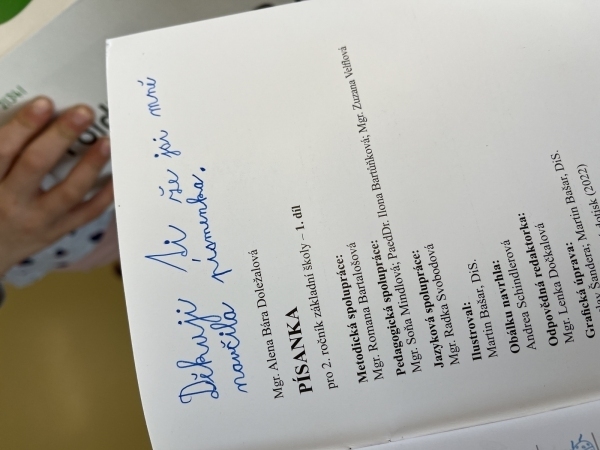 Děkuji Ti že jsi mně
naučila písmenka.
Mgr. Alena Bára Doležalová
PÍSANKA
pro 2. ročník základní školy – 1. díl
Metodická spolupráce:
Mgr. Romana Bartalošová
Pedagogická spolupráce:
Mgr. Soňa Mindlová; PaedDr. Ilona Bartúňková; Mgr. Zuzana Velflová
Jazyková spolupráce:
Mgr. Radka Svobodová
Ilustroval:
Martin Bašar, DiS.
Obálku navrhla:
Andrea Schindlerová
Odpovědná redaktorka:
Mgr. Lenka Dočkalová
Grafická úprava:
Šandera; Martin Bašar, DiS.
dotisk (2022)